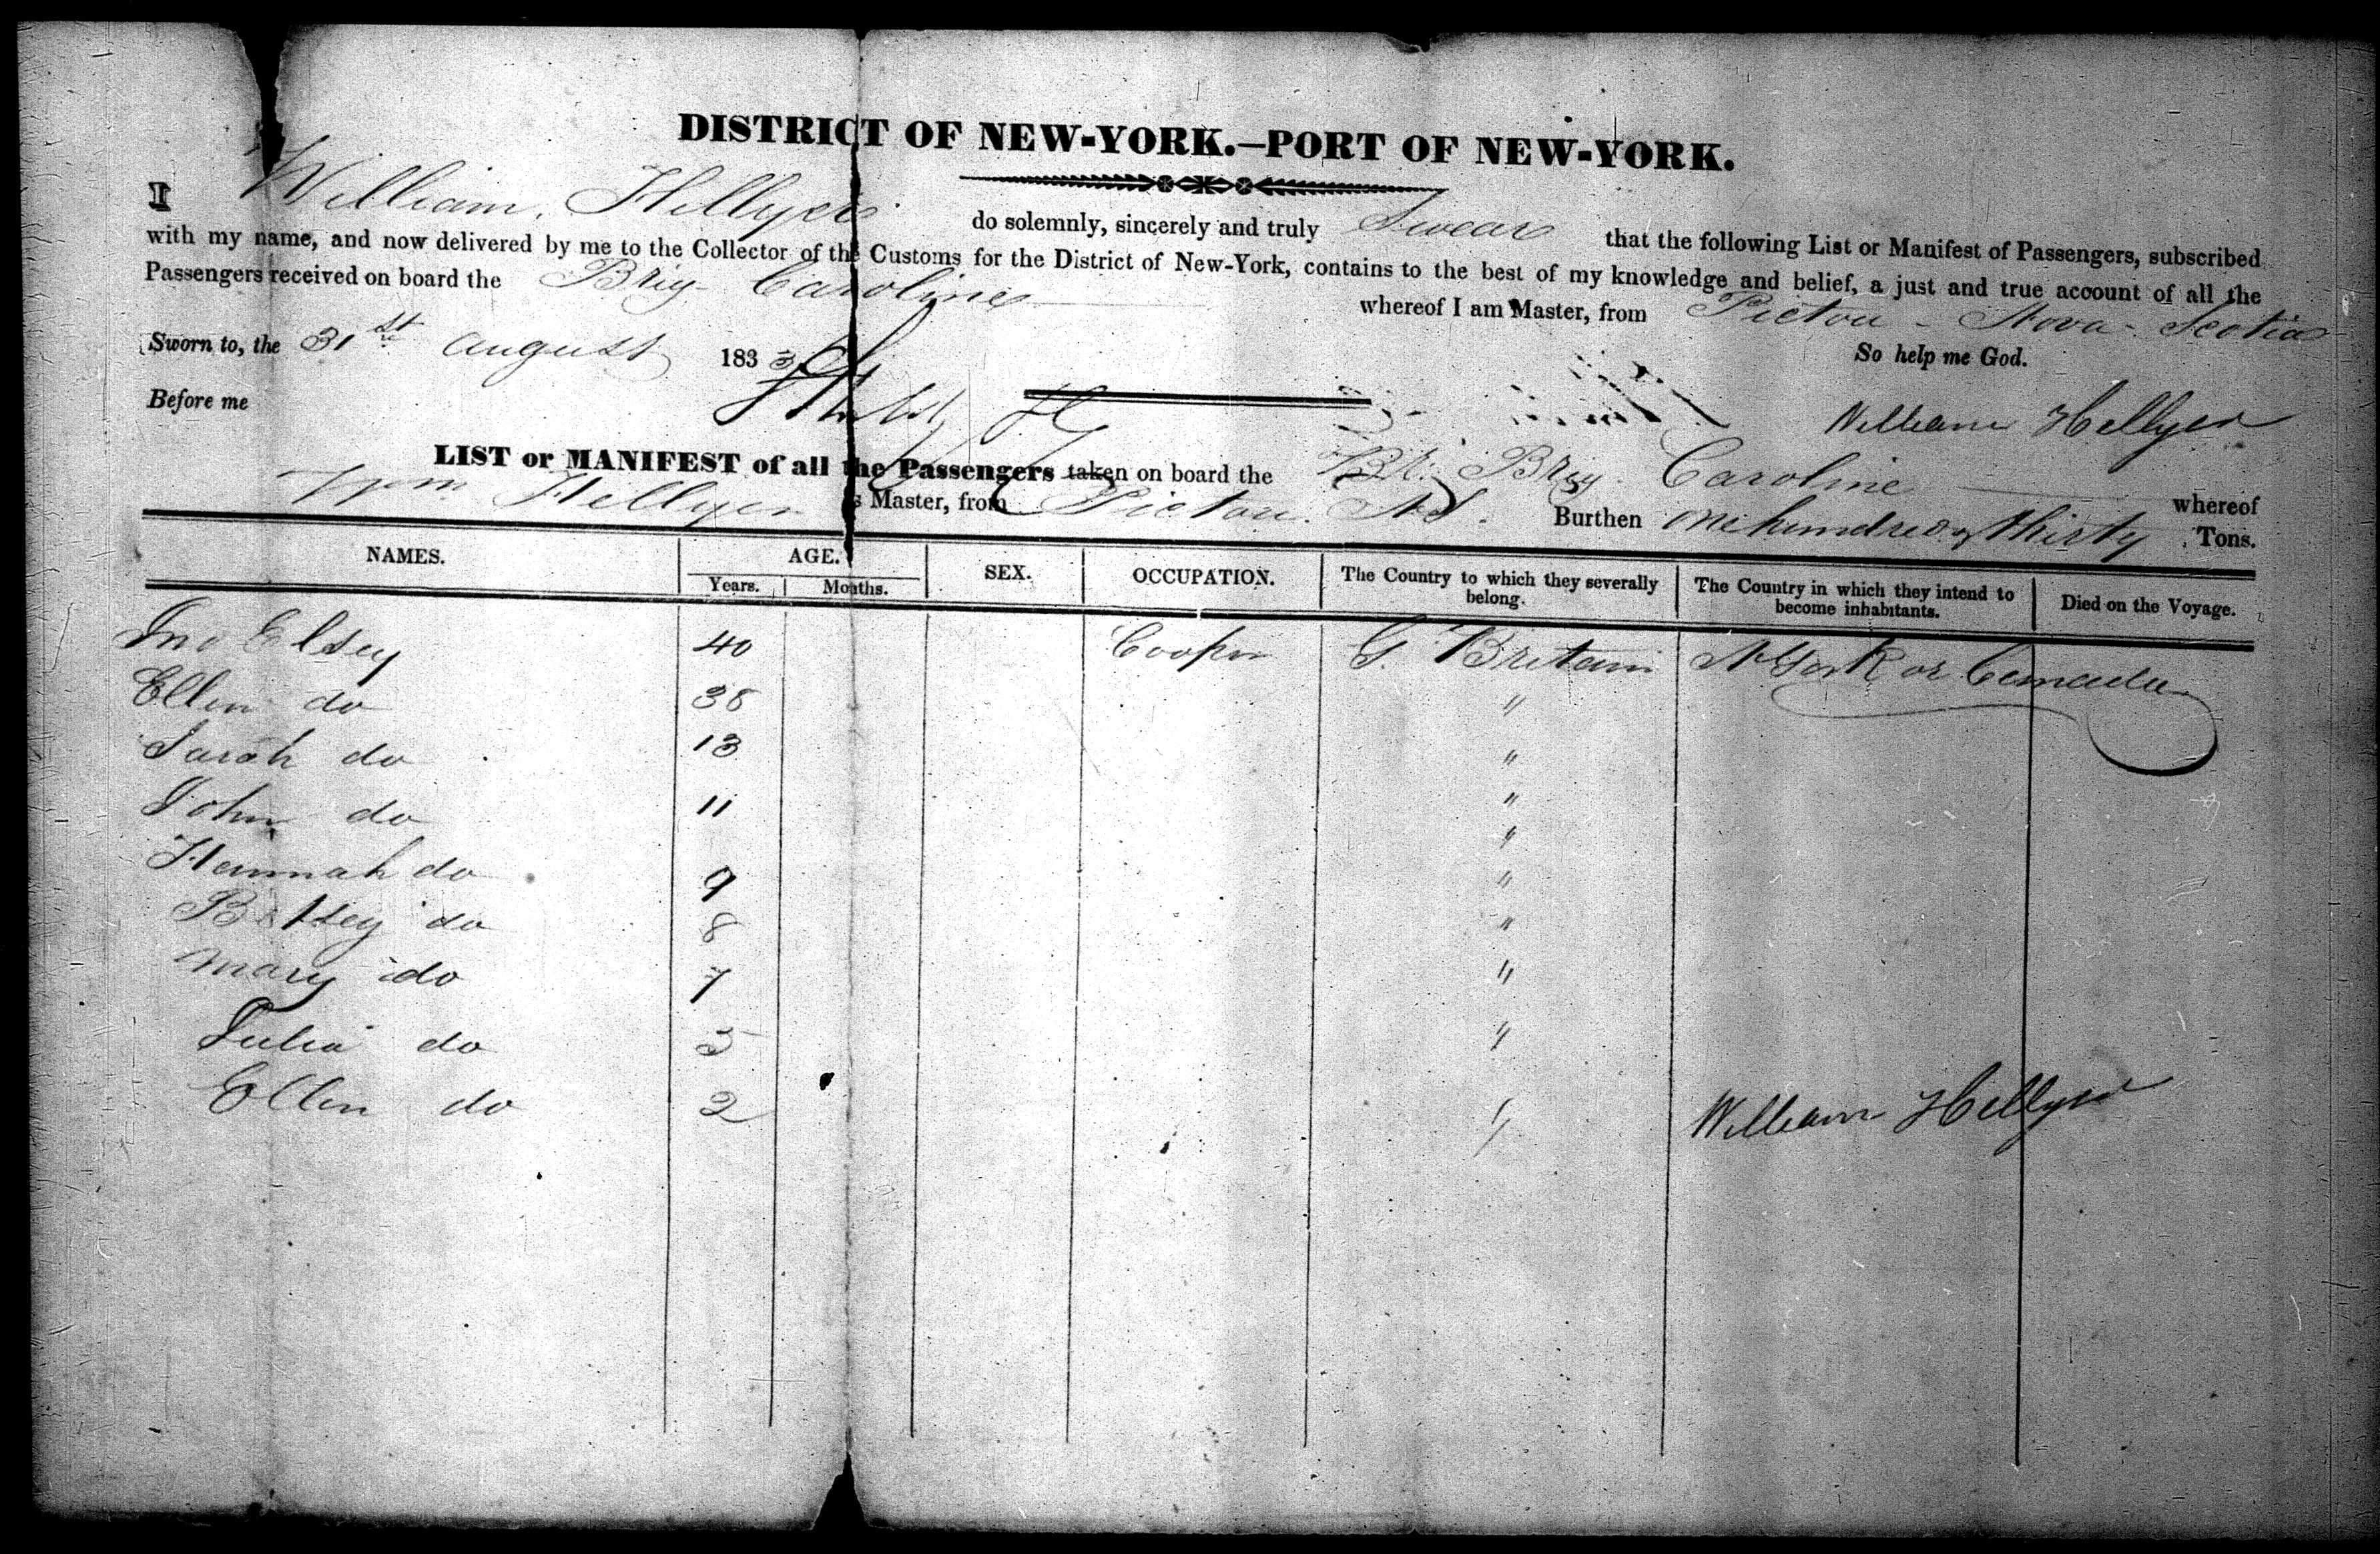 DISTRICT OF NEW-YORK.—PORT OF NEW-YORK.
I William Hellyer do solemnly, sincerely and truly Swear that the following List or Manifest of Passengers, subscribed
with my name, and now delivered by me to the Collector of the Customs for the District of New-York, contains to the best of my knowledge and belief, a just and true account of all the
Passengers received on board the Brig Caroline whereof I am Master, from Pictou - Nova - Scotia
Sworn to, the 31st August 1833 So help me God.
Before me William Hellyer
LIST or MANIFEST of all the Passengers taken on board the Br. Brig Caroline whereof
Wm Hellyer is Master, from Pictou. NS. Burthen One hundred & thirty Tons.
NAMES. AGE. SEX. OCCUPATION. The Country to which they severally belong. The Country in which they intend to become inhabitants. Died on the Voyage.
Years. Months.
Jno Elsey 40 Cooper G. Britain N York or Canada
Ellen do 38 "
Sarah do 13 "
John do 11 "
"
Hannah do 9 "
Betsey do 8 "
Mary do 7 "
Julia do 5 "
Ellen do 2 " William Hellyer